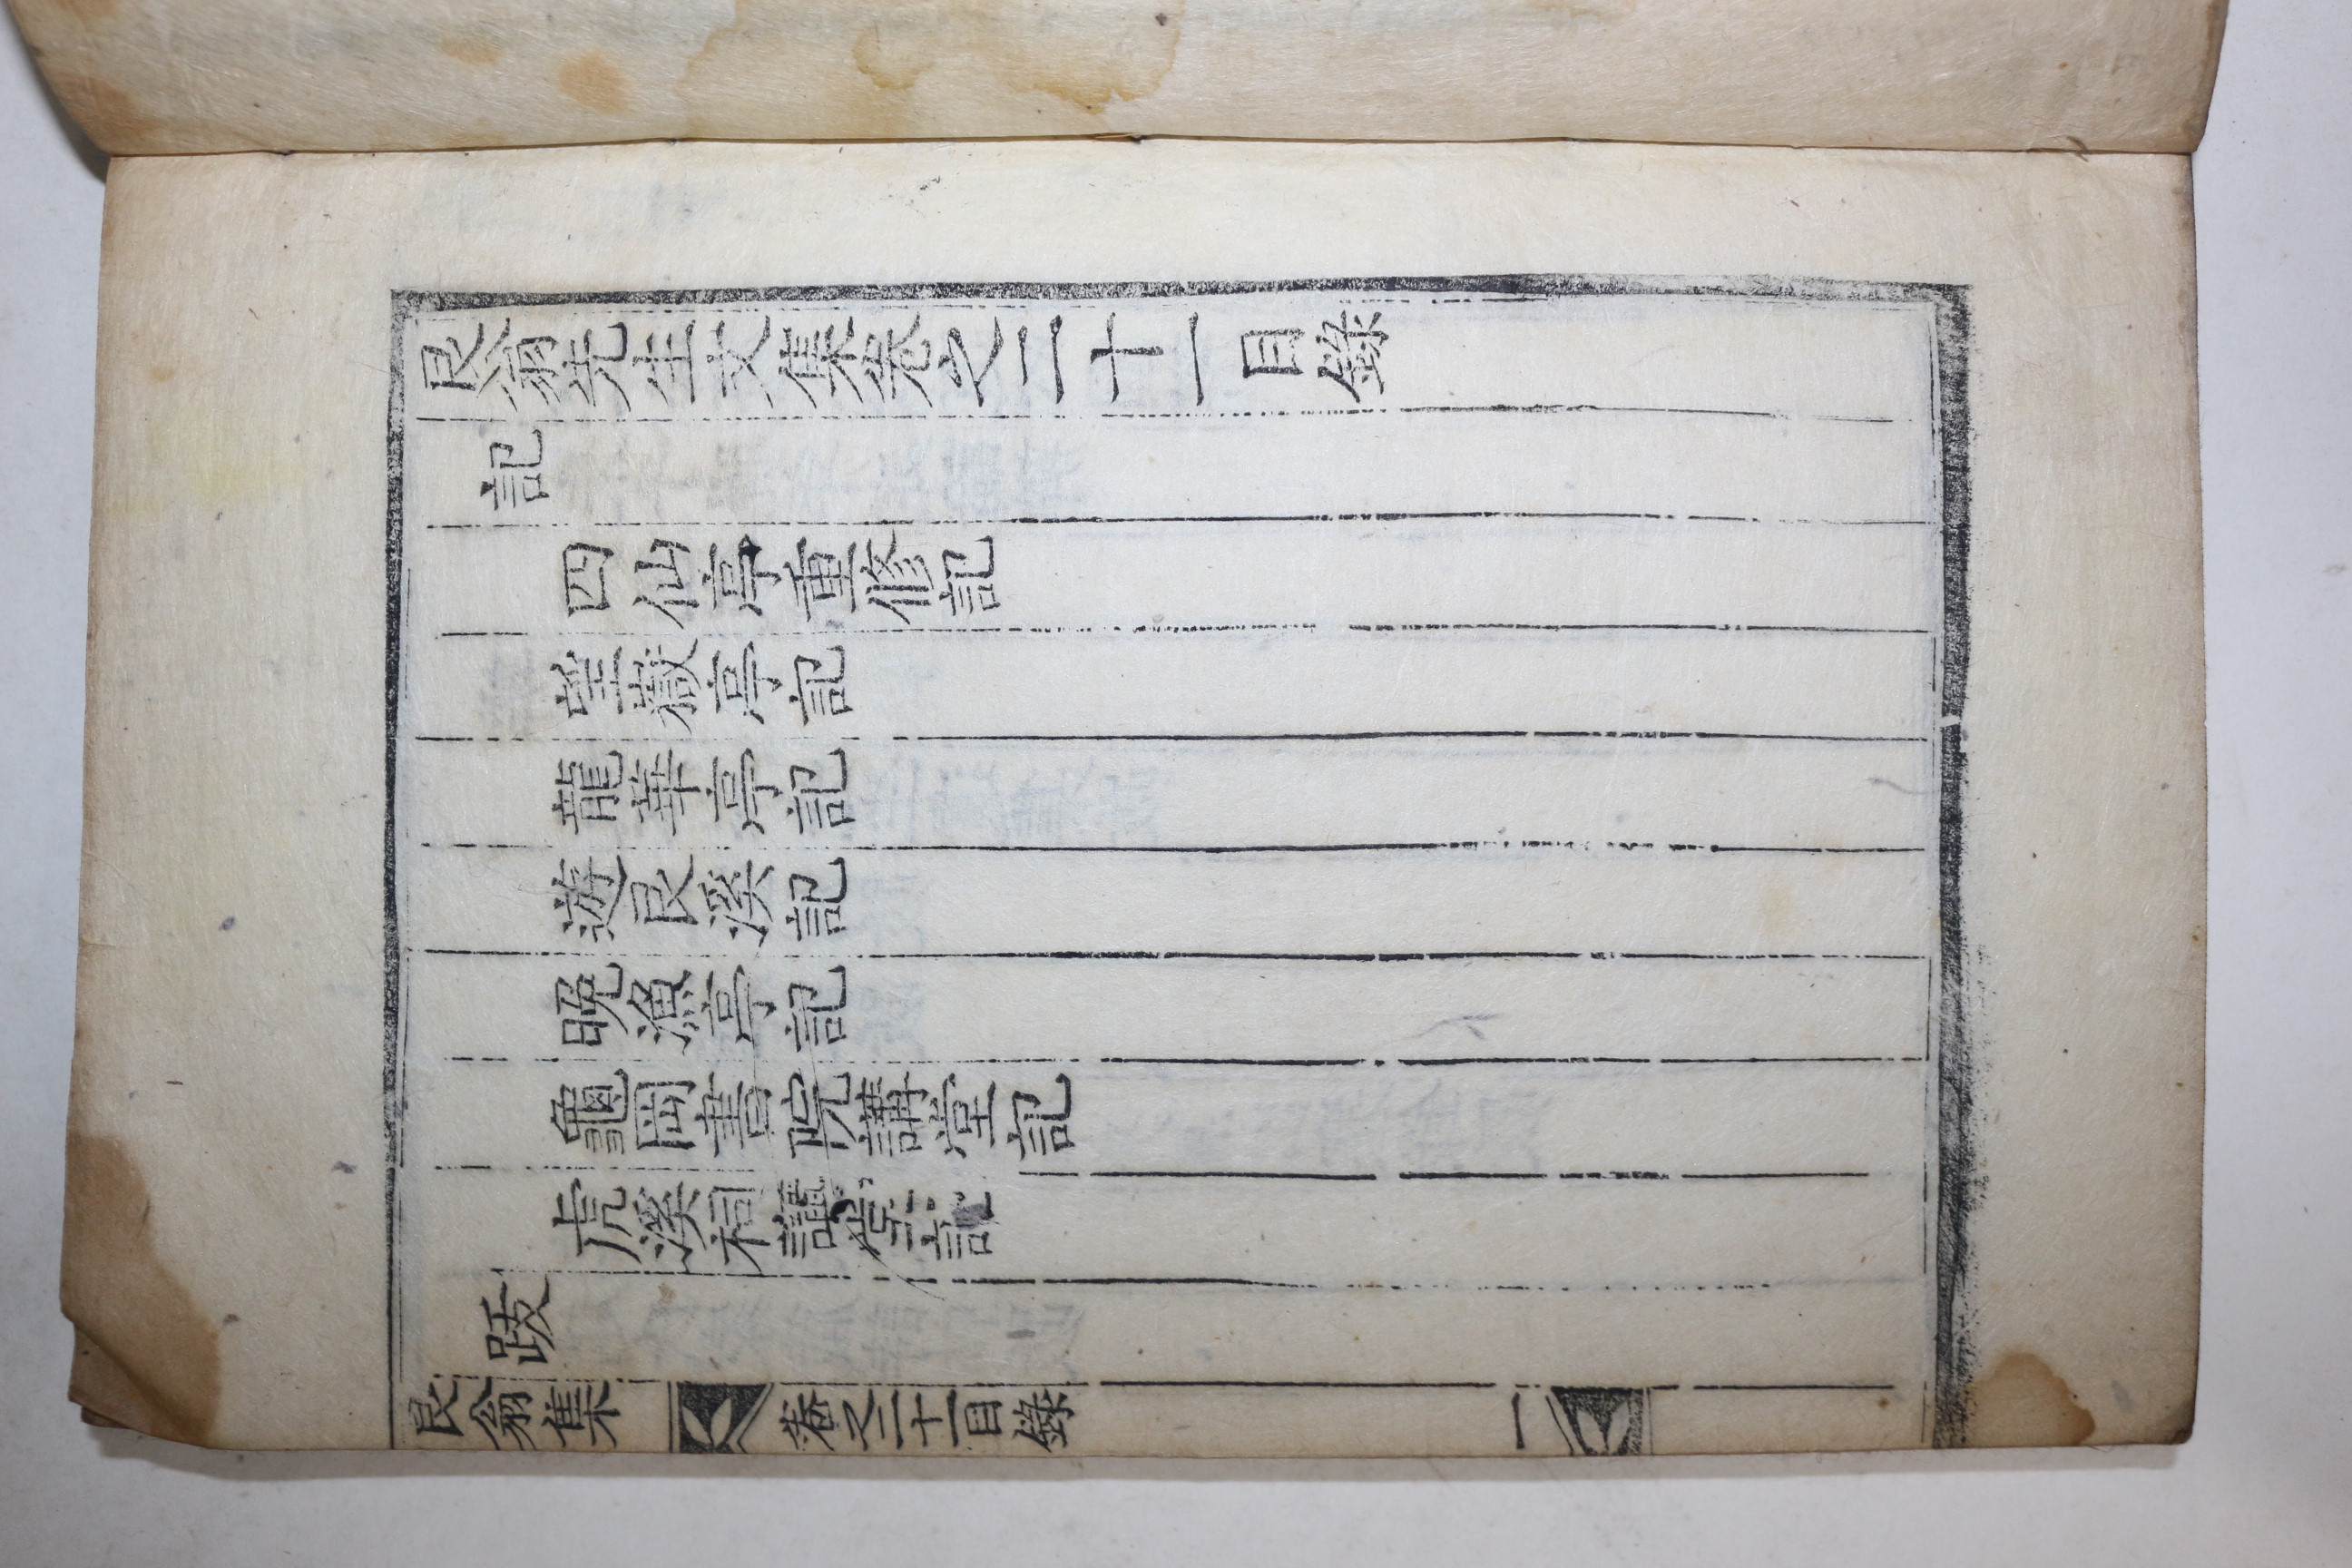 艮翁先生文集卷之二十一目錄
記
四仙亭重修記
望嶽亭記
龍華亭記
遊艮溪記
晩漁亭記
龜岡書院講堂記
虎溪祠講堂記
跋
艮翁集 卷之二十一目錄 一